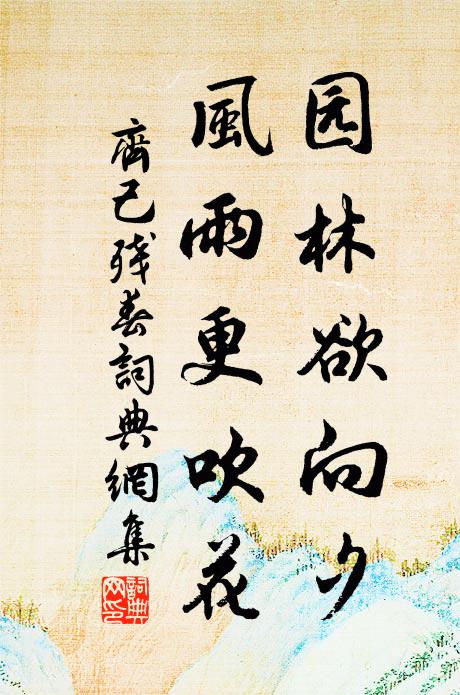 园林欲向夕
風雨更吹花
齊己残春詞典網集
詞典
网印